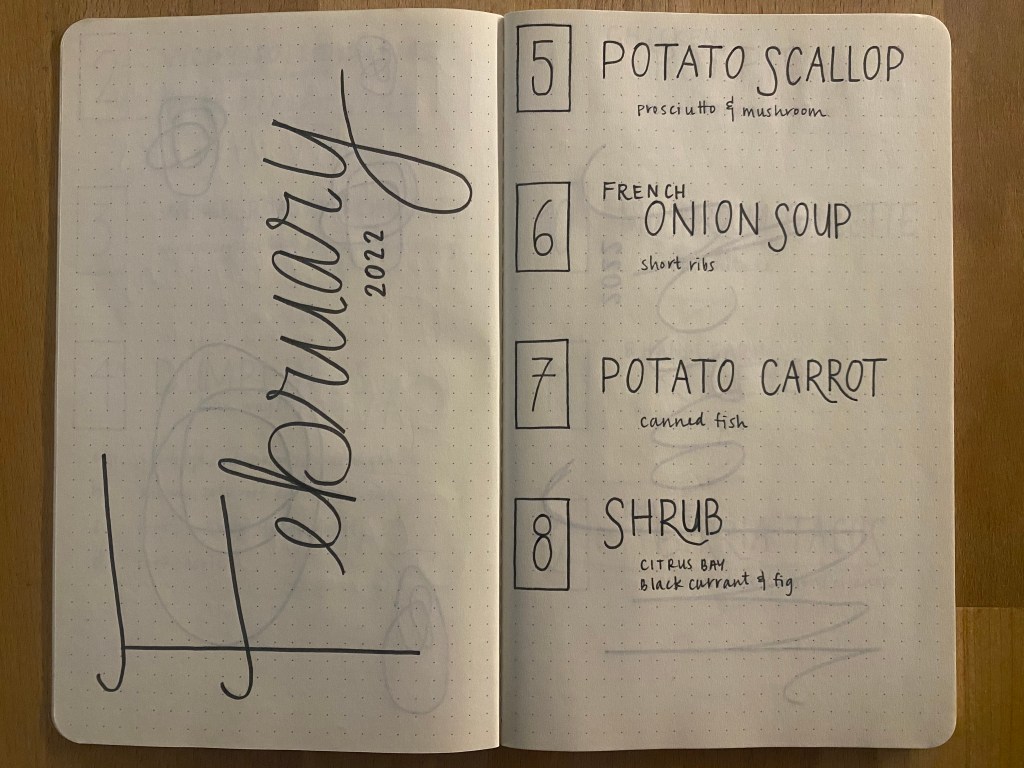 February
2022
5
POTATO SCALLOP
prosciutto & mushroom
6
FRENCH
ONION SOUP
short ribs
7
POTATO CARROT
canned fish
8
SHRUB
CITRUS BAY
Black currant & fig